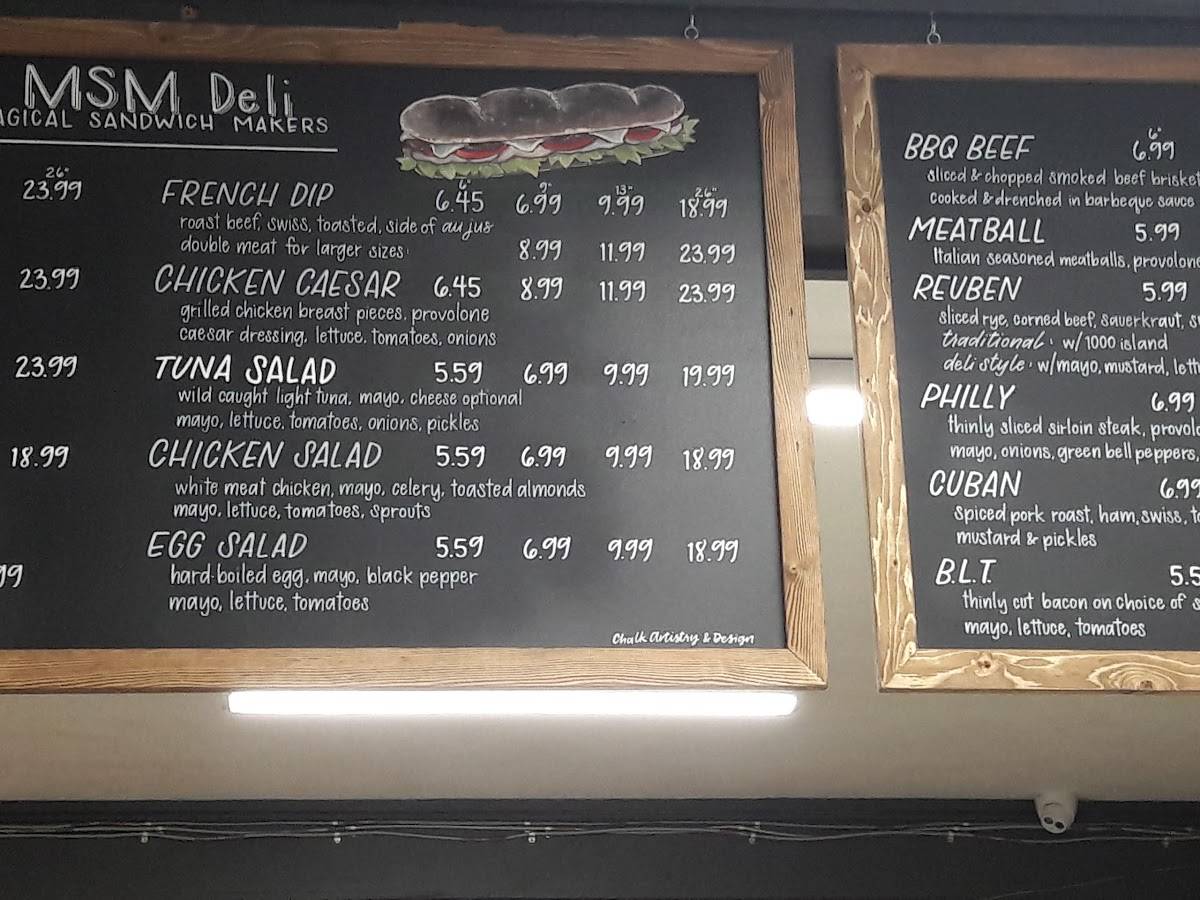 MSM Deli
AGICAL SANDWICH MAKERS
26"
23.99
23.99
23.99
18.99
99
6" 9" 13" 26"
FRENCH DIP 6.45 6.99 9.99 18.99
roast beef, swiss, toasted, side of au jus
double meat for larger sizes: 8.99 11.99 23.99
CHICKEN CAESAR 6.45 8.99 11.99 23.99
grilled chicken breast pieces, provolone
caesar dressing, lettuce, tomatoes, onions
TUNA SALAD 5.59 6.99 9.99 19.99
wild caught light tuna, mayo, cheese optional
mayo, lettuce, tomatoes, onions, pickles
CHICKEN SALAD 5.59 6.99 9.99 18.99
white meat chicken, mayo, celery, toasted almonds
mayo, lettuce, tomatoes, sprouts
EGG SALAD 5.59 6.99 9.99 18.99
hard-boiled egg, mayo, black pepper
mayo, lettuce, tomatoes
Chalk Artistry & Design
6"
BBQ BEEF 6.99
sliced & chopped smoked beef brisket
cooked & drenched in barbeque sauce
MEATBALL 5.99
Italian seasoned meatballs, provolone
REUBEN 5.99
sliced rye, corned beef, sauerkraut, s
traditional: w/ 1000 island
deli style: w/mayo, mustard, lett
PHILLY 6.99
thinly sliced sirloin steak, provol
mayo, onions, green bell peppers,
CUBAN 6.99
spiced pork roast, ham, swiss, t
mustard & pickles
B.L.T. 5.5
thinly cut bacon on choice of s
mayo, lettuce, tomatoes